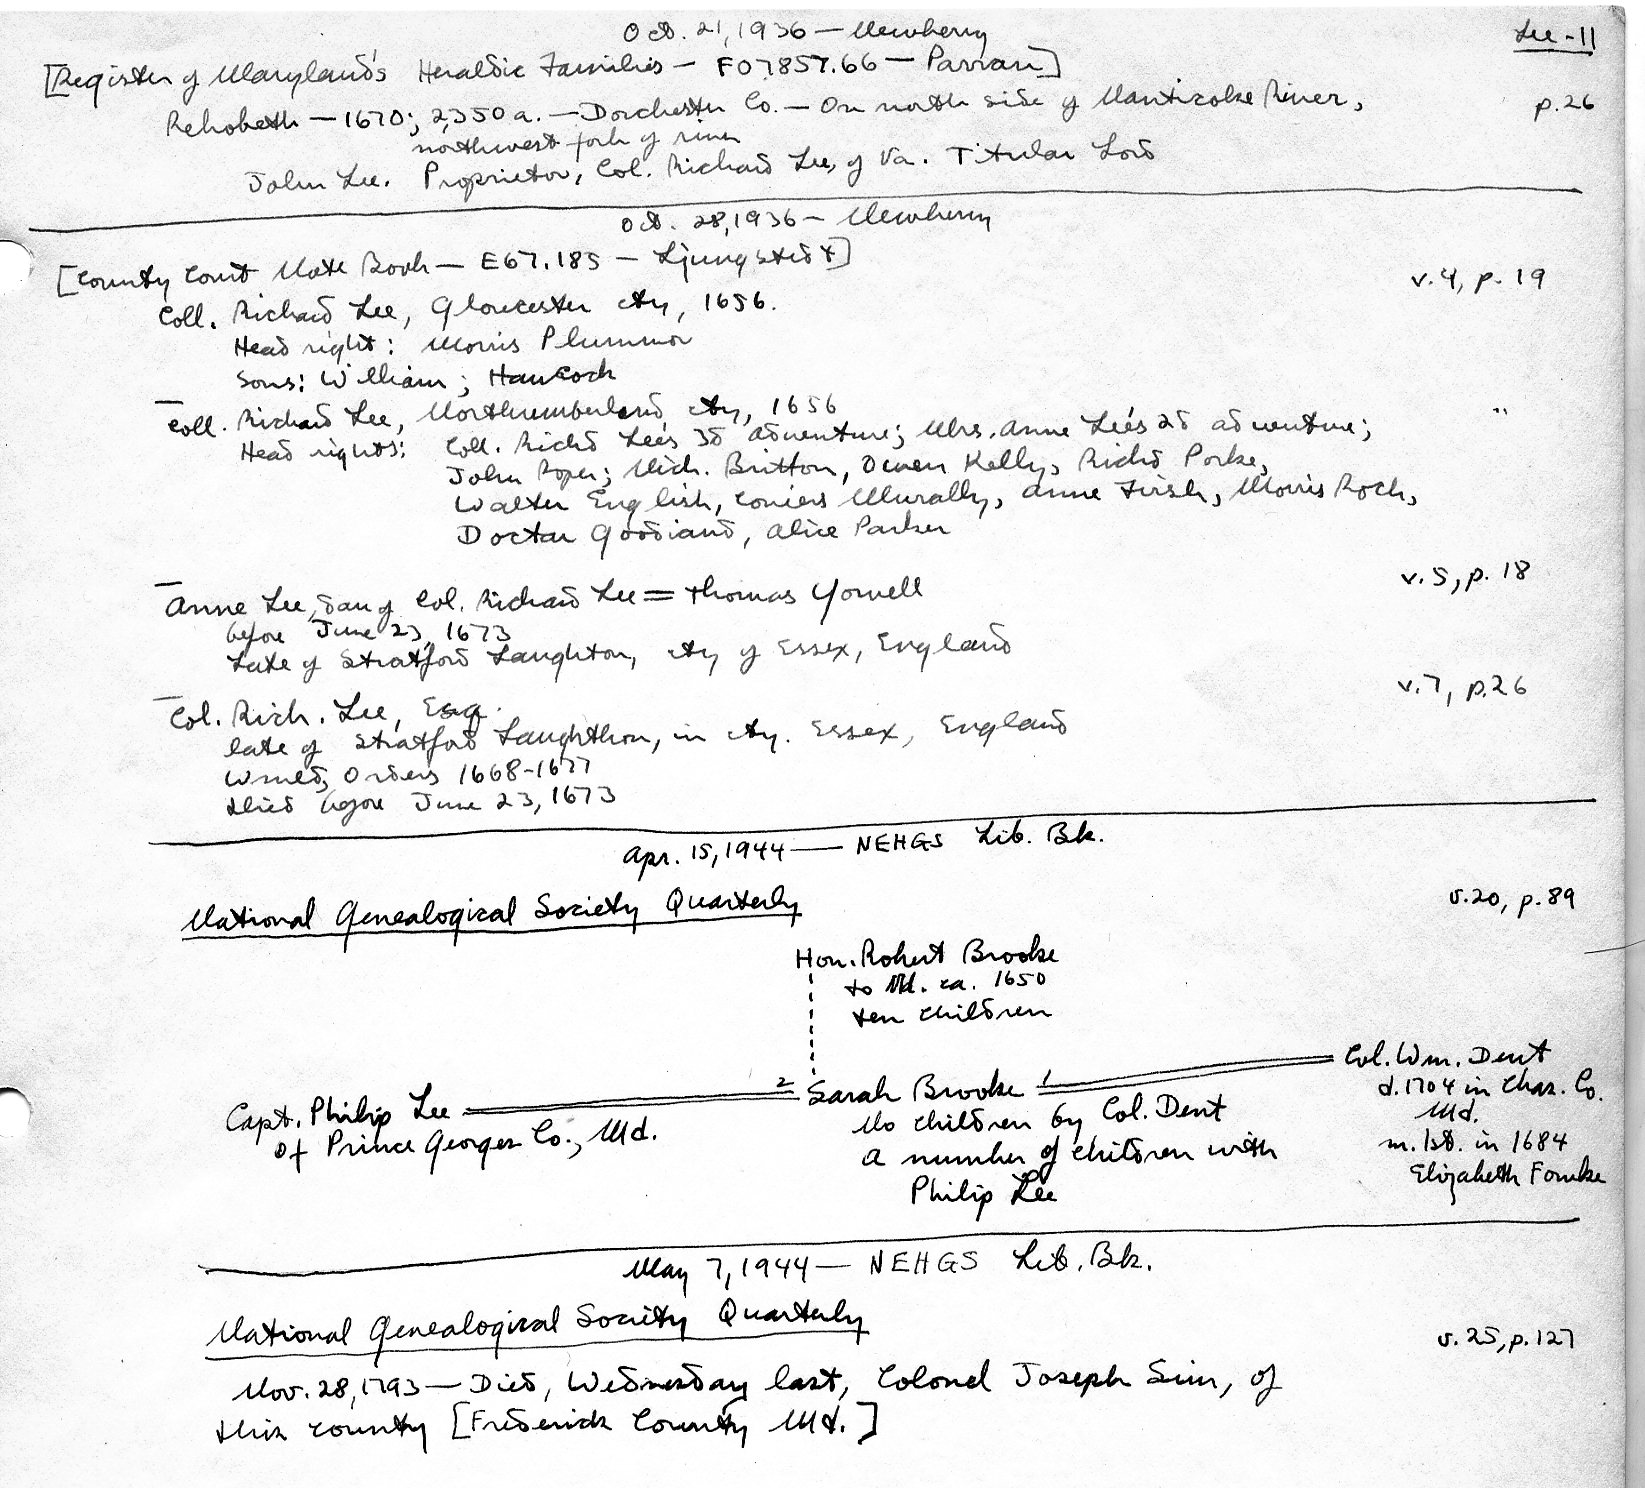 Oct. 21, 1936 — Newberry
Lee-11
[Register of Maryland's Heraldic Families — F07.857.66 — Parran]
Rehobeth — 1670; 2,350 a. — Dorchester Co. — On north side of Nanticoke River,
p.26
northwest fork of river
John Lee. Proprietor, Col. Richard Lee, of Va. Titular Lord
Oct. 28, 1936 — Newberry
[County Court Note Book — E67.185 — Ljungstedt]
v.4, p. 19
Coll. Richard Lee, Gloucester cty, 1656.
Head right: Morris Plummor
Sons: William; Hancock
Coll. Richard Lee, Northumberland cty, 1656
"
Head rights: Coll. Richd Lee's 3d adventure; Mrs. Anne Lee's 2d adventure;
John Roper; Nich. Britton, Owen Kelly, Richd Porke,
Walter English, Coniers Murally, Anne Firsh, Morris Roch,
Doctar Goodiand, Alice Parker
v.5, p. 18
Anne Lee, dau of Col. Richard Lee = Thomas Yowell
before June 23, 1673
Late of Stratford Laughton, cty of Essex, England
v.7, p.26
Col. Rich. Lee, Esq.
late of Stratford Laughthon, in cty. Essex, England
Wmld, Orders 1668-1677
Died before June 23, 1673
Apr. 15, 1944 — NEHGS Lib. Bk.
National Genealogical Society Quarterly
v.20, p.89
Hon. Robert Brooke
to Md. ca. 1650
ten children
Col. Wm. Dent
Capt. Philip Lee 2 Sarah Brooke 1
d. 1704 in Chas. Co.
Md.
of Prince Georges Co., Md.
No children by Col. Dent
m. 1st. in 1684
a number of children with
Elizabeth Fowke
Philip Lee
May 7, 1944 — NEHGS Lib. Bk.
National Genealogical Society Quarterly
v.25, p.127
Nov. 28, 1793 — Died, Wednesday last, Colonel Joseph Sim, of
this county [Frederick County Md.]